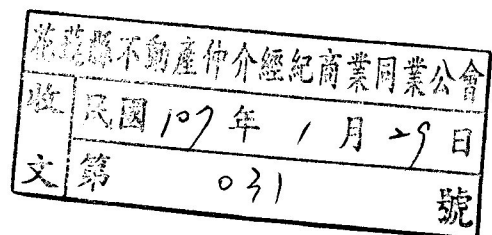 花蓮縣不動產仲介經紀商業同業公會
收文
民國107年1月29日
第031號